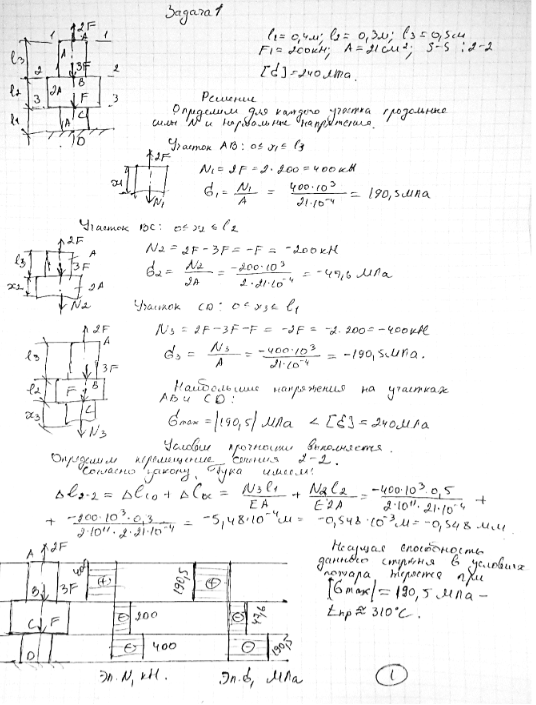 Задача 1
l₁ = 0,4м; l₂ = 0,3м; l₃ = 0,5м
F₁ = 200кН; A = 21см²; S-S : 2-2
[σ] = 240МПа.
Решение
Определим для каждого участка продольные
силы N и нормальные напряжения.
Участок AB: 0 ≤ x₁ ≤ l₃
N₁ = 2F = 2·200 = 400кН
σ₁ = N₁/A = 400·10³/21·10⁻⁴ = 190,5МПа
Участок BC: 0 ≤ x₂ ≤ l₂
N₂ = 2F - 3F = -F = -200кН
σ₂ = N₂/2A = -200·10³/2·21·10⁻⁴ = -47,6 МПа
Участок CD: 0 ≤ x₃ ≤ l₁
N₃ = 2F - 3F - F = -2F = -2·200 = -400кН
σ₃ = N₃/A = -400·10³/21·10⁻⁴ = -190,5МПа.
Наибольшие напряжения на участках
AB и CD:
σmax = |190,5| МПа < [σ] = 240МПа
Условие прочности выполняется.
Определим перемещение сечения 2-2.
Согласно закону Гука имеем:
Δl₂₋₂ = Δl_CD + Δl_BC = N₃l₁/EA + N₂l₂/E2A = -400·10³·0,5/2·10¹¹·21·10⁻⁴ +
+ -200·10³·0,3/2·10¹¹·2·21·10⁻⁴ = -5,48·10⁻⁴м = -0,548·10⁻³м = -0,548 мм
Несущая способность
данного стержня в условиях
пожара теряется при
|σmax| = 190,5 МПа –
tкр ≈ 310°C.
A 2F
B 3F
C F
D
400
200
400
190,5
47,6
190,5
Эп. N, кН.
Эп. σ, МПа
1